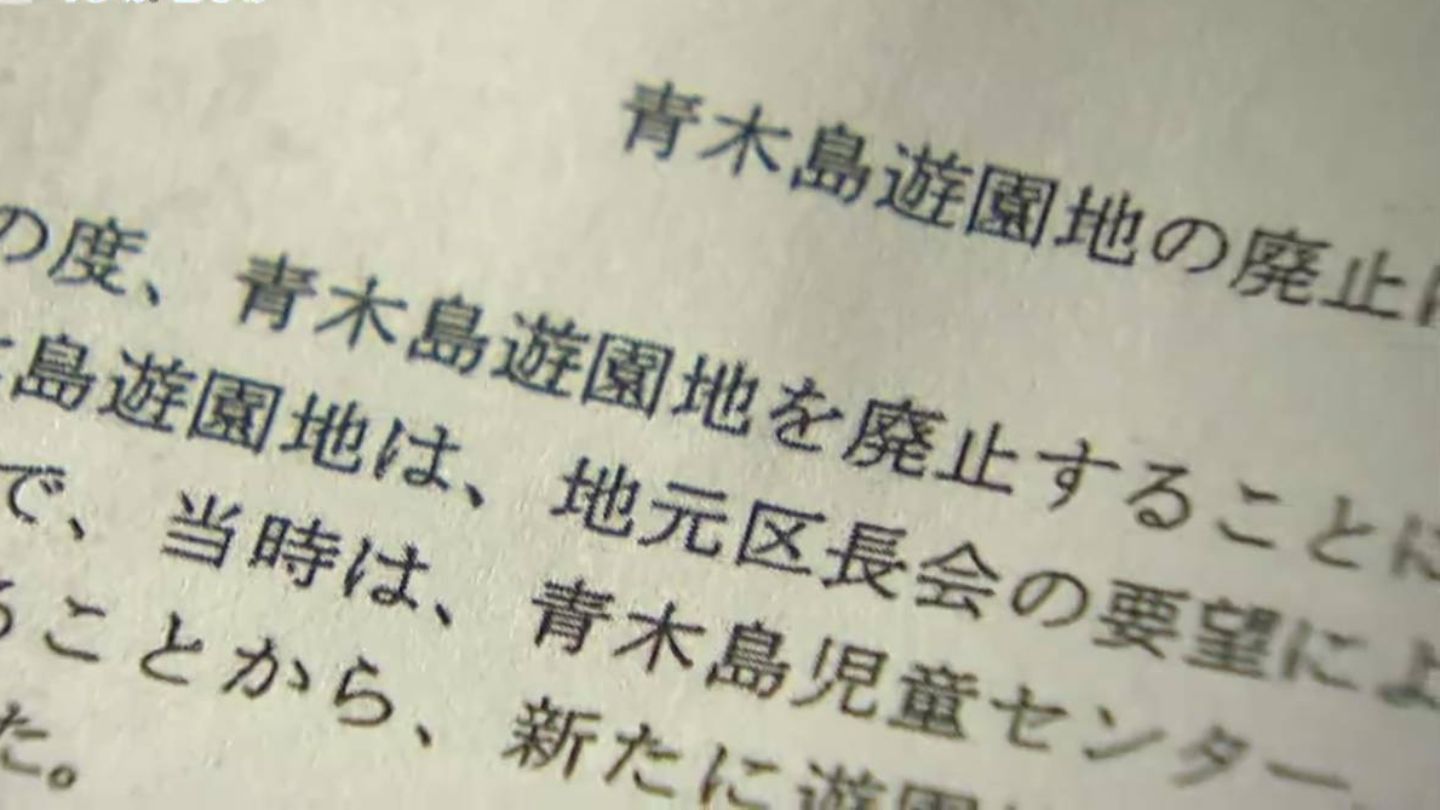 青木島遊園地の廃止に
の度、青木島遊園地を廃止することに
島遊園地は、地元区長会の要望によ
で、当時は、青木島児童センター
ることから、新たに遊園
た。